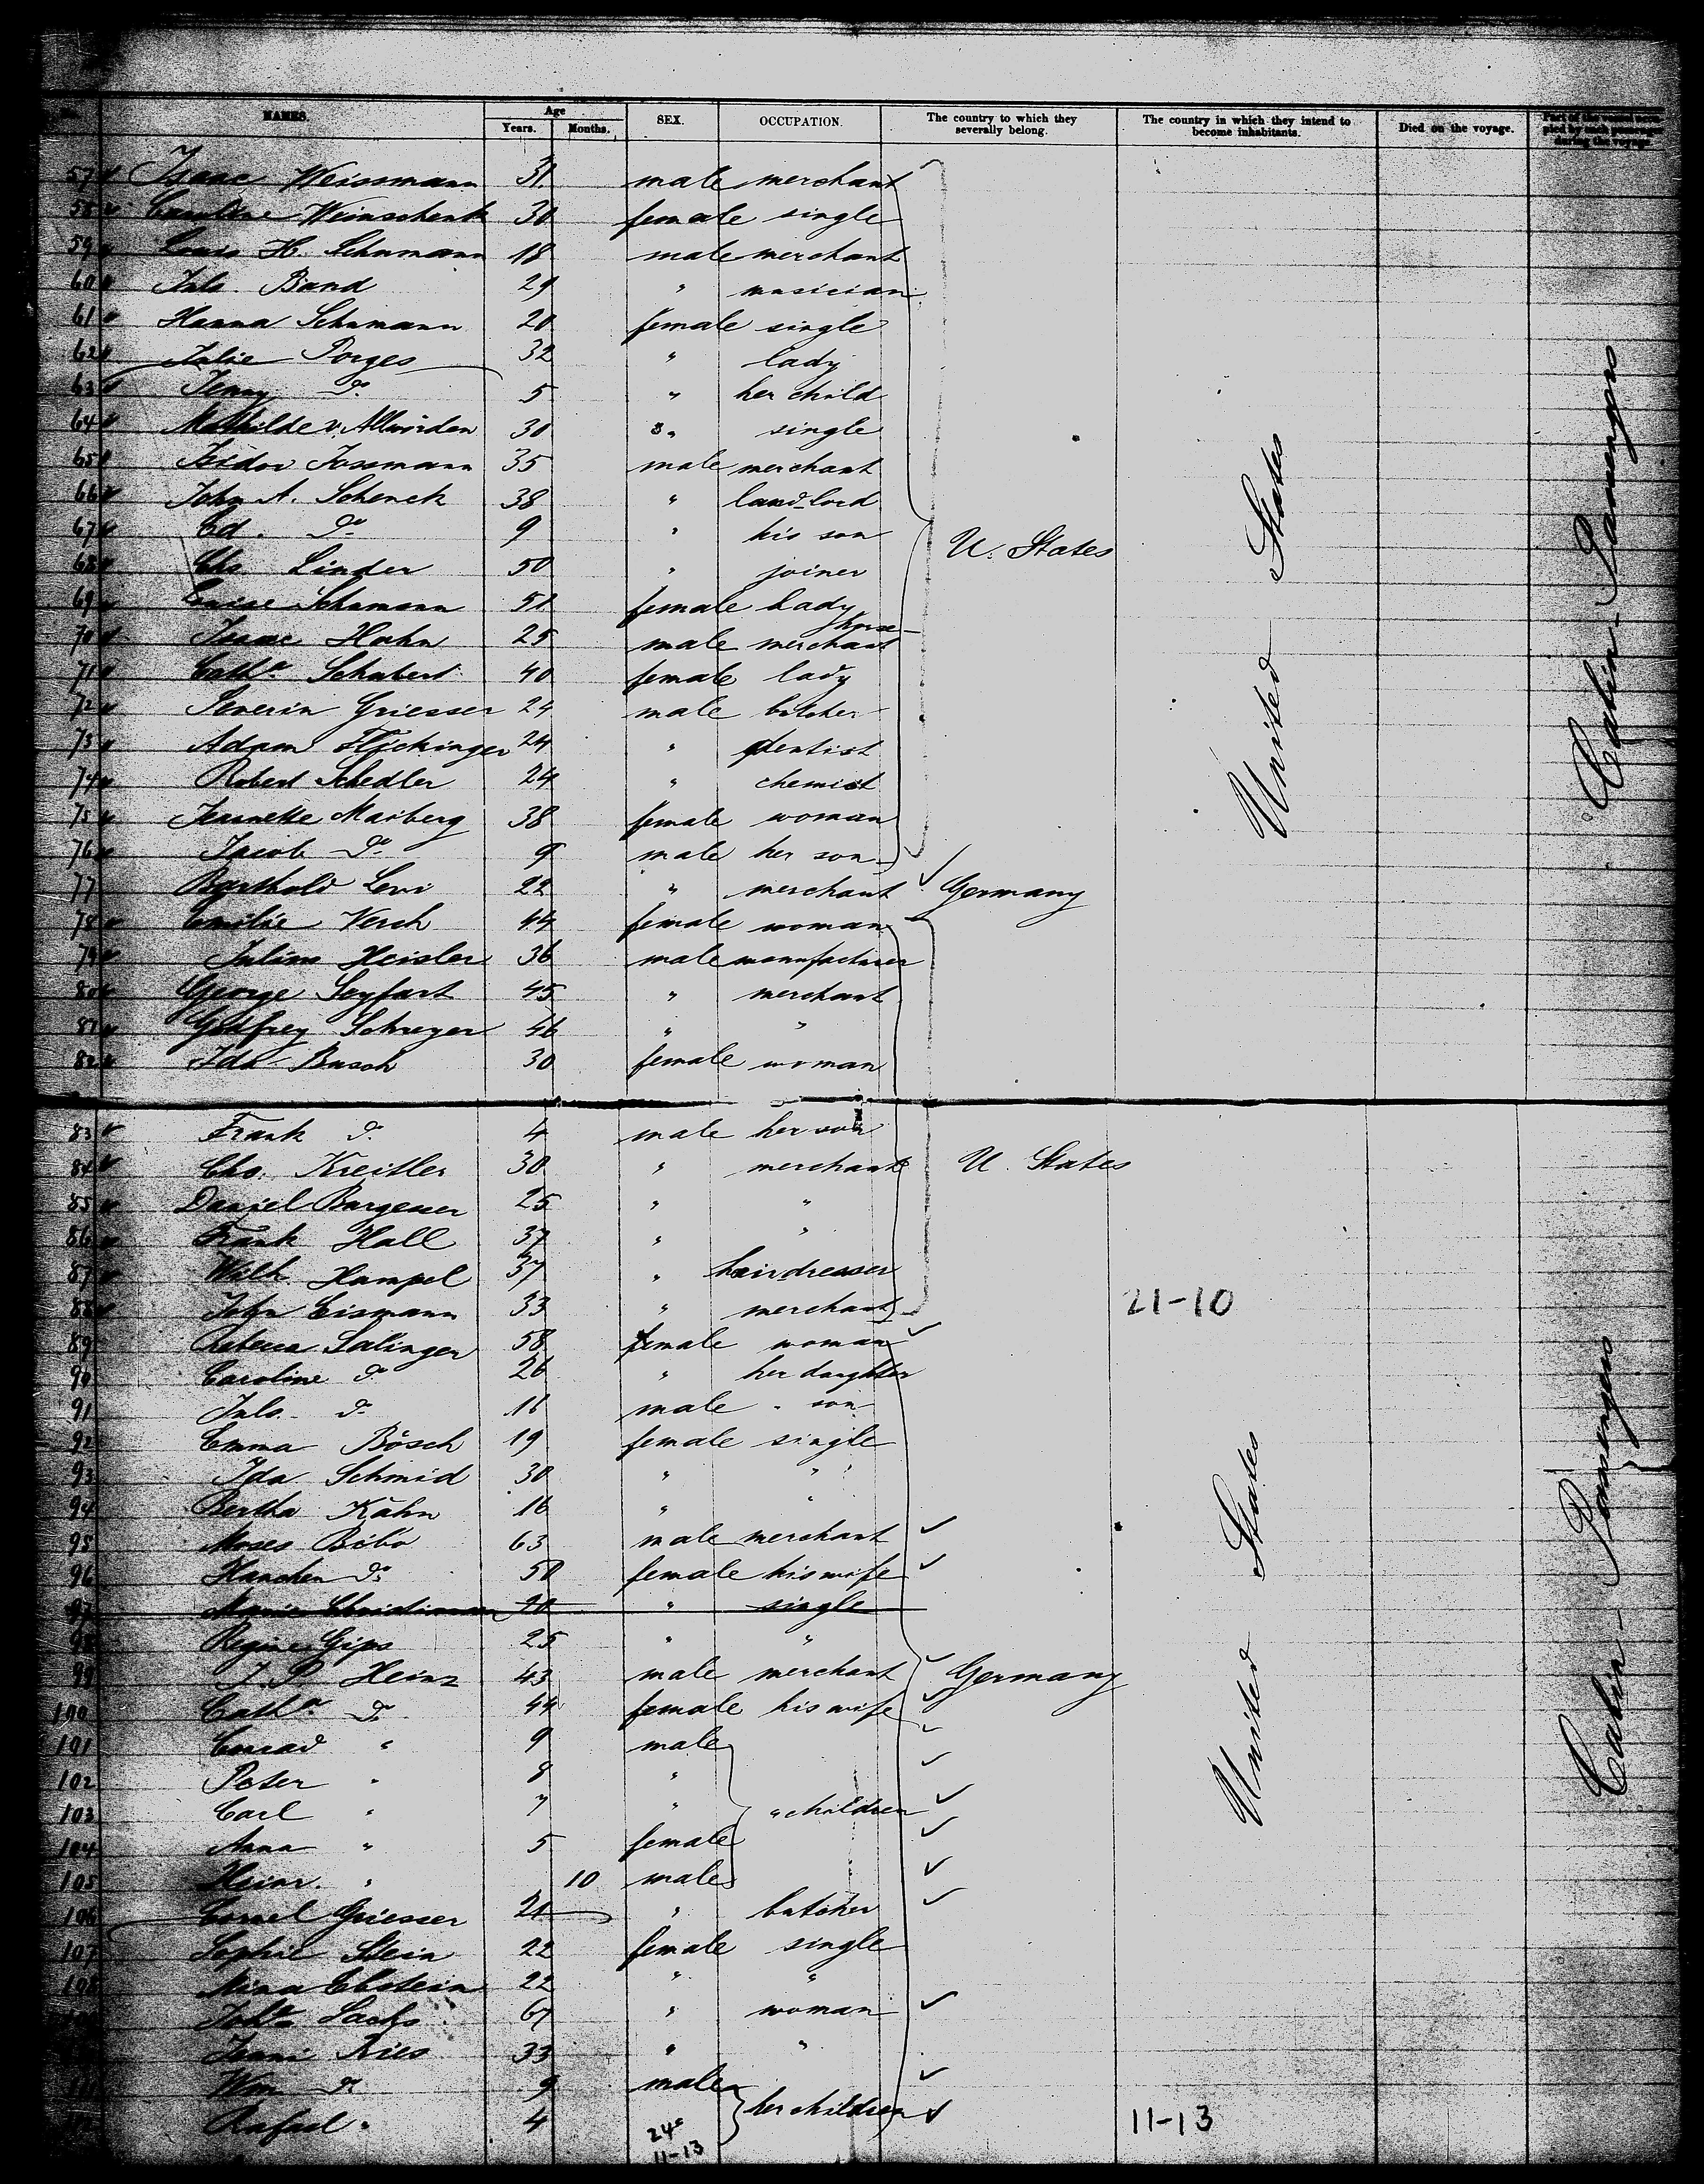 NAMES. Age Years. Months. SEX. OCCUPATION. The country to which they severally belong. The country in which they intend to become inhabitants. Died on the voyage. Part of the vessel occupied by each passenger during the voyage.
57 Isaac Weissmann 31 male merchant
58 Caroline Weinschenk 30 female single
59 Louis H. Schumann 18 male merchant
60 Juls. Band 29 " musician
61 Hanna Schumann 20 female single
62 Julie Porges 32 " lady
63 Jenny do 5 " her child
64 Mathilde v. Allwörden 30 " single
65 Isidor Jossmann 35 male merchant
66 John A. Schenck 38 " landlord
67 Ed. do 9 " his son
U. States
68 Chs. Linder 50 " joiner
69 Luise Schumann 51 female Lady
70 Isaac Hahn 25 male horse merchant
71 Catha. Schubert 40 female lady
72 Severin Griesser 24 male butcher
73 Adam Flickinger 24 " dentist
74 Robert Schedler 24 " chemist
75 Jeannette Marberg 38 female woman
76 Jacob do 9 male her son
77 Barthold Levi 22 " merchant Germany
78 Emilie Verch 44 female woman
79 Julius Heisler 36 male manufacturer
80 George Seyfart 45 " merchant
81 Godfrey Schreyer 46 " "
82 Ida Busch 30 female woman
United States
Cabin-Passengers
83 Frank do 4 male her son
84 Chs. Kreitler 30 " merchant U. States
85 Daniel 25 " "
86 Frank Hall 37 " "
87 Wilh. Hampel 37 " hairdresser
88 John Eismann 33 " merchant
21-10
89 Rebecca Salinger 58 female woman
90 Caroline do 26 " her daughter
91 Juls. do 16 male " son
92 Emma Bösch 19 female single
93 Ida Schmid 30 " "
94 Bertha Kahn 16 " "
95 Moses Bibo 63 male merchant
96 Hanchen do 50 female his wife
97 Marie Christiansen 20 " single
98 Regine Gips 25 " "
99 J. P. Heinz 43 male merchant Germany
100 Catha. do 44 female his wife
101 Conrad " 9 male
102 Peter " 8 "
103 Carl " 7 " " children
104 Anna " 5 female
105 Heinr. " 10 male
106 Cornel Griesser 21 " butcher
107 Sophie Stein 22 female single
108 Mina Ebstein 22 " "
Sachs 67 " woman
Jenni Ries 33 " "
Wm do 9 male
Rafael " 4 her children
11-13
24c
11-13
United States
Cabin-Passengers